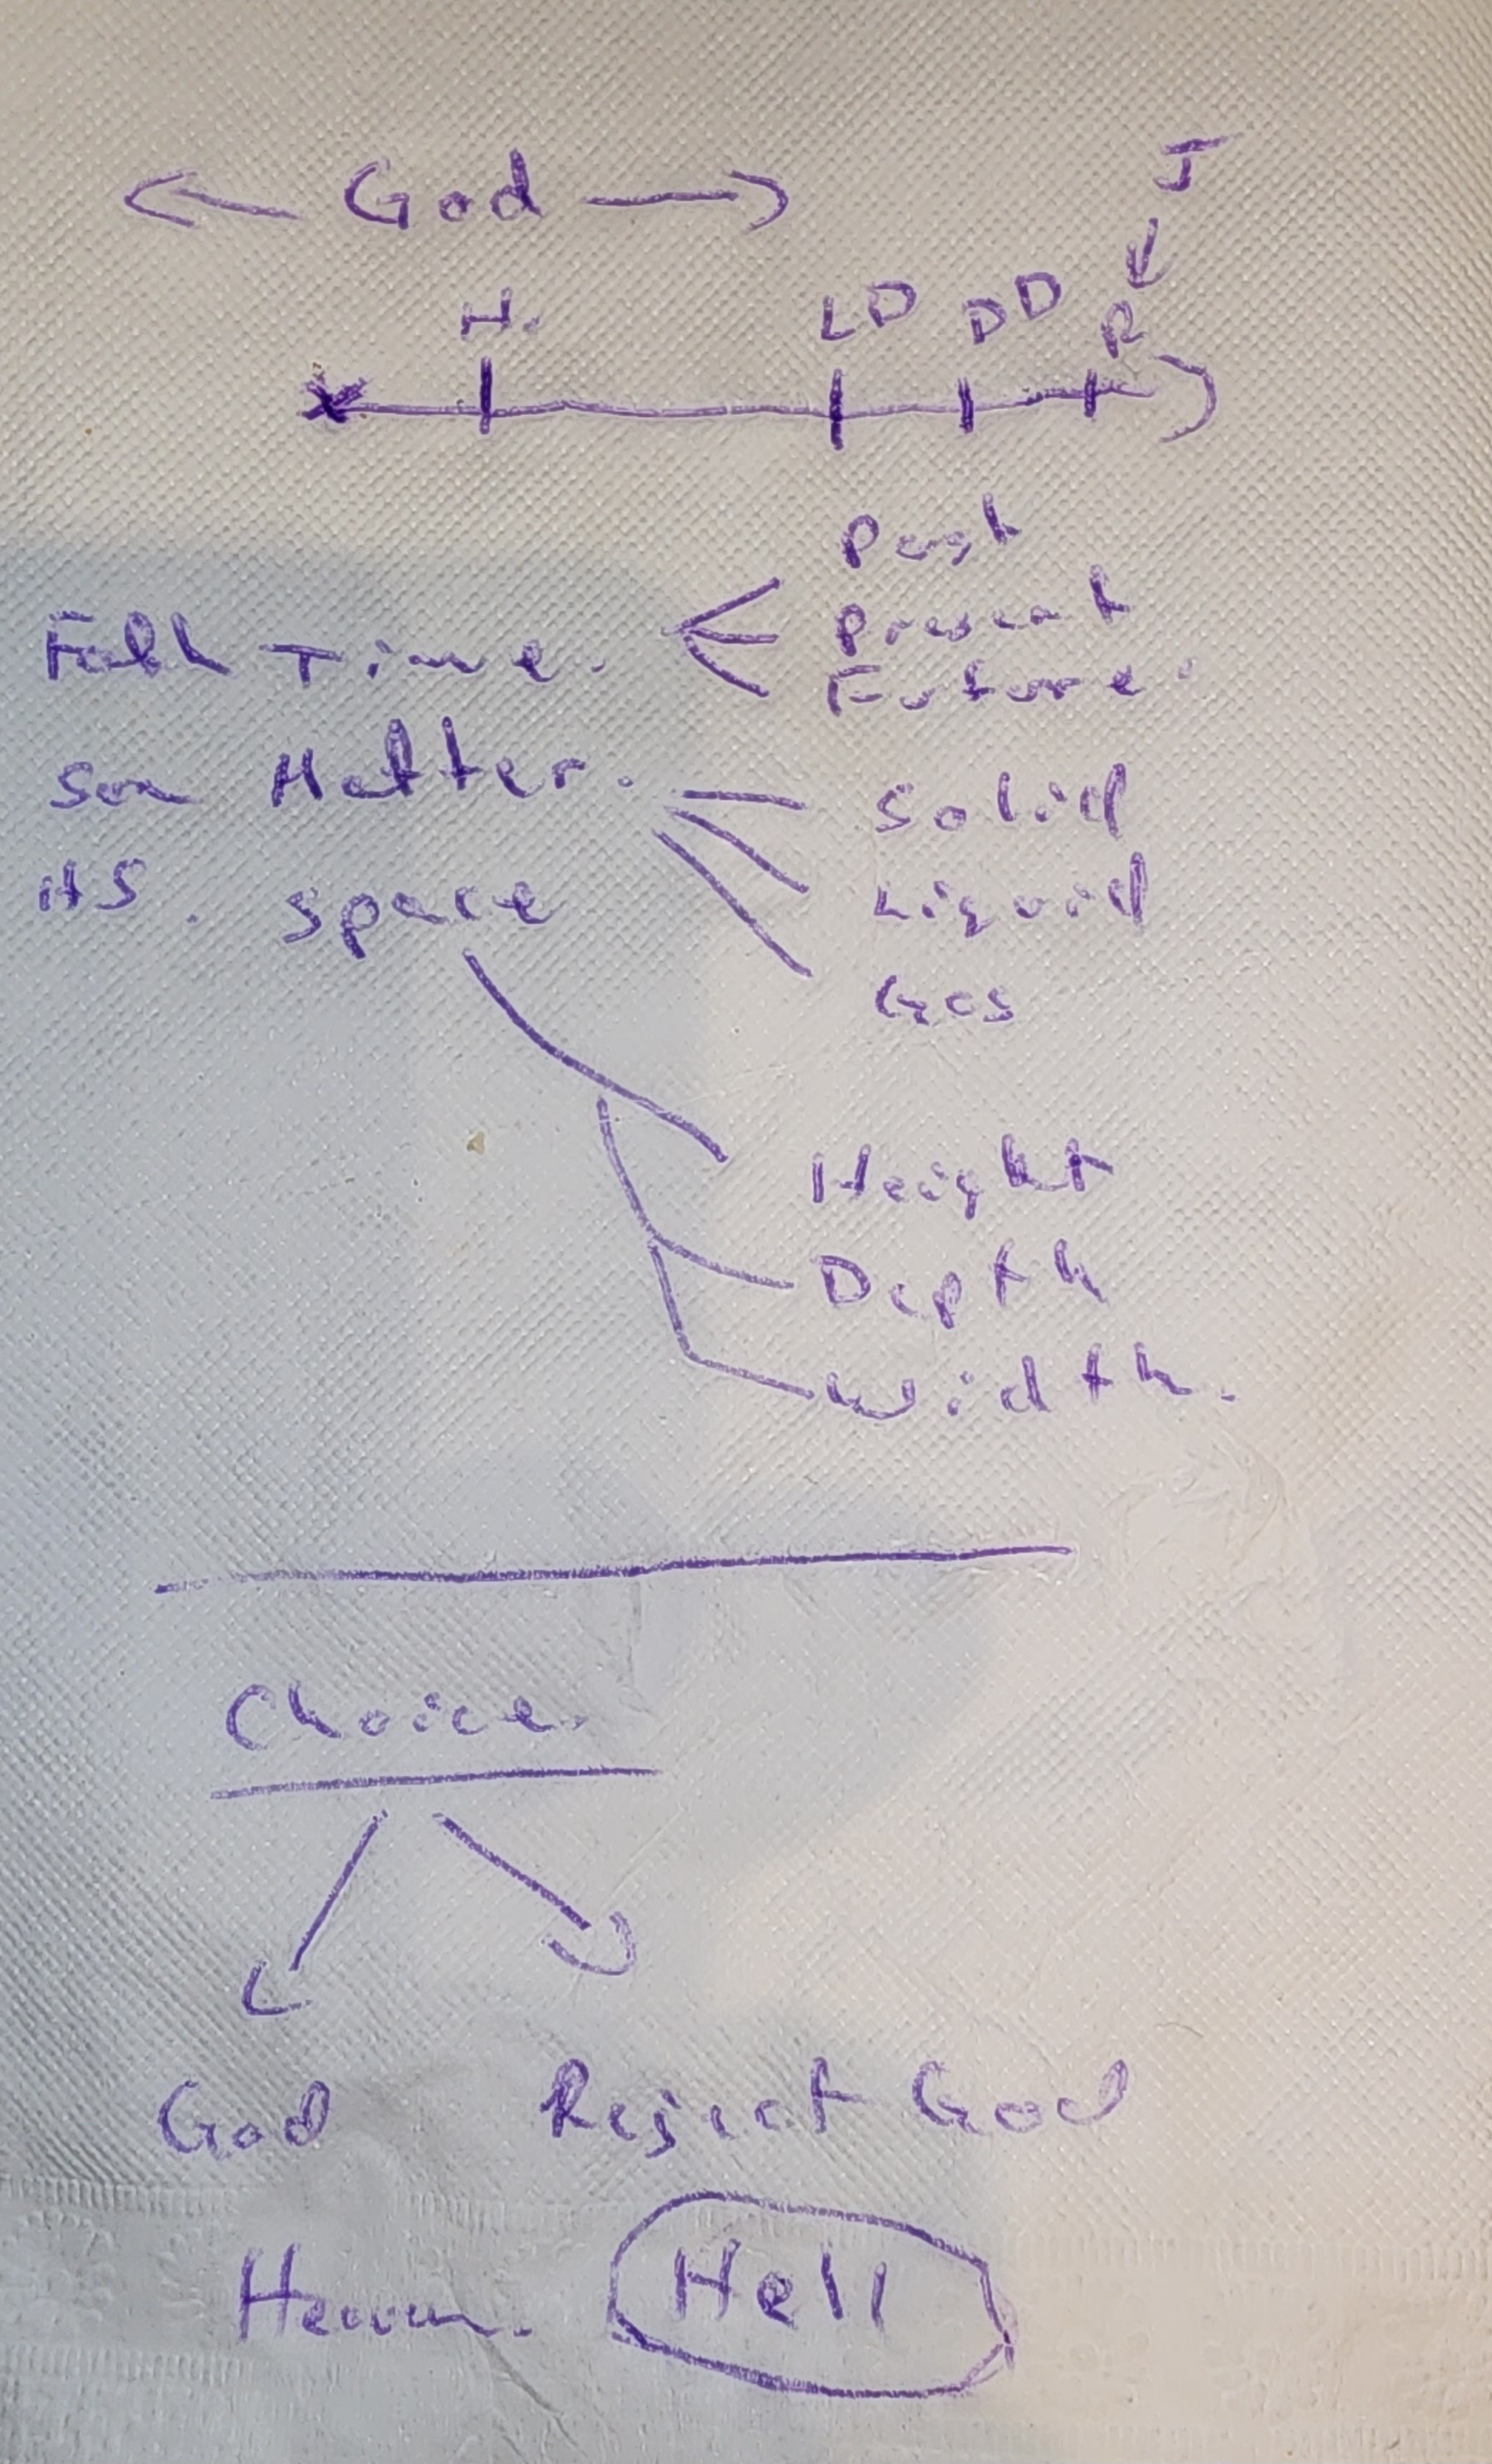 God
J
H. LD DD R
Time.
Past
Present
Future.
Son Matter.
Solid
Liquid
Gas
HS. Space
Height
Depth
Width.
Choice.
God Reject God
Heaven. Hell